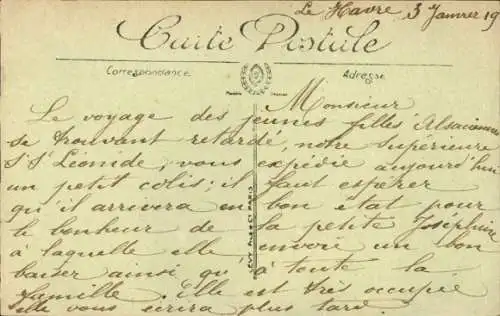 Le Havre 3 Janvier 19
Carte Postale
Correspondance
Adresse
Monsieur
Le voyage des jeunes filles Alsaciennes
se trouvant retardé, notre supérieure
Sr St Léonide, vous expédie aujourd'hui
un petit colis; il faut espérer
qu'il arrivera en bon état pour
le bonheur de la petite Joséphine
à laquelle elle envoie un bon
baiser ainsi qu'à toute la
famille. Elle est très occupée
elle vous écrira plus tard.